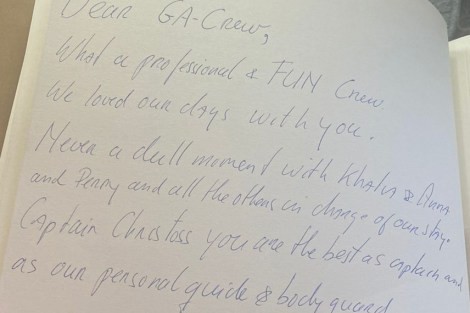 Dear GA-Crew,
What a professional & FUN Crew
We loved our days with you.
Never a dull moment with & Anna
and Penny and all the others in charge of our stay.
Captain you are the best as captain and
as our personal guide & bodyguard